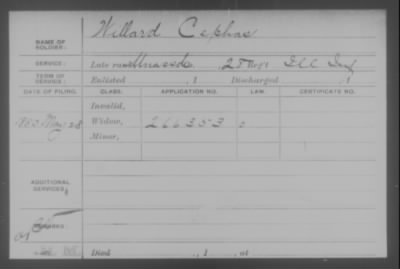 NAME OF SOLDIER: Willard Cephas
SERVICE: Late rank Unassd., 28 Reg't Ill Inf
TERM OF SERVICE: Enlisted , 1 Discharged , 1
DATE OF FILING. CLASS. APPLICATION NO. LAW. CERTIFICATE NO.
Invalid,
May 28 Widow, 266353
Minor,
ADDITIONAL SERVICES:
REMARKS:
Died , 1 , at